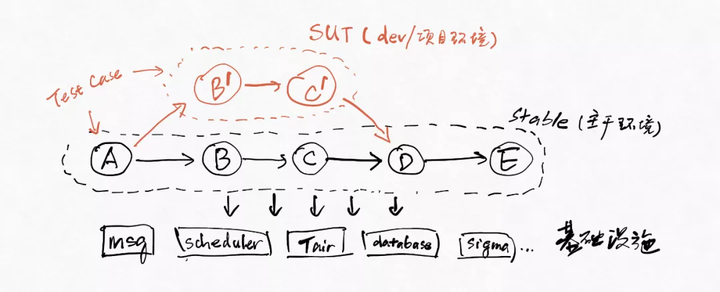 SUT (dev/项目环境)
Test Case
B'
C'
Stable (主干环境)
A
B
C
D
E
msg
scheduler
Tair
database
sigma
...
基础设施